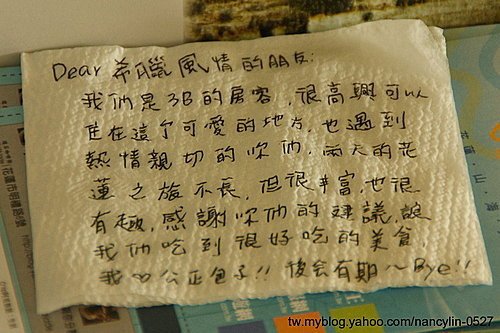 Dear 希臘風情的朋友:
我們是3B的房客,很高興可以
住在這个可愛的地方,也遇到
熱情親切的你們,兩天的花
蓮之旅不長,但很丰富,也很
有趣,感謝你們的建議,讓
我們吃到很好吃的美食,
我♡公正包子!! 後會有期~Bye!!
花蓮市明禮路
tw.myblog.yahoo.com/nancylin-0527